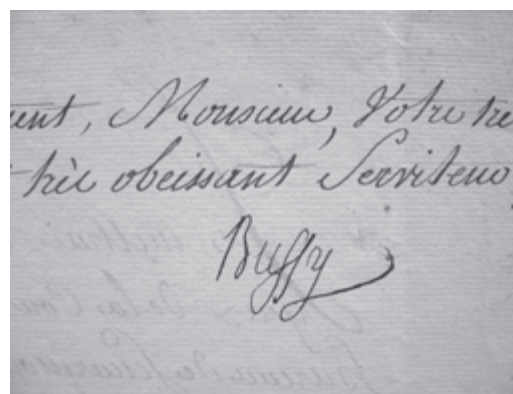 ent, Monsieur, Votre tre
très obeissant Serviteur
Bussy